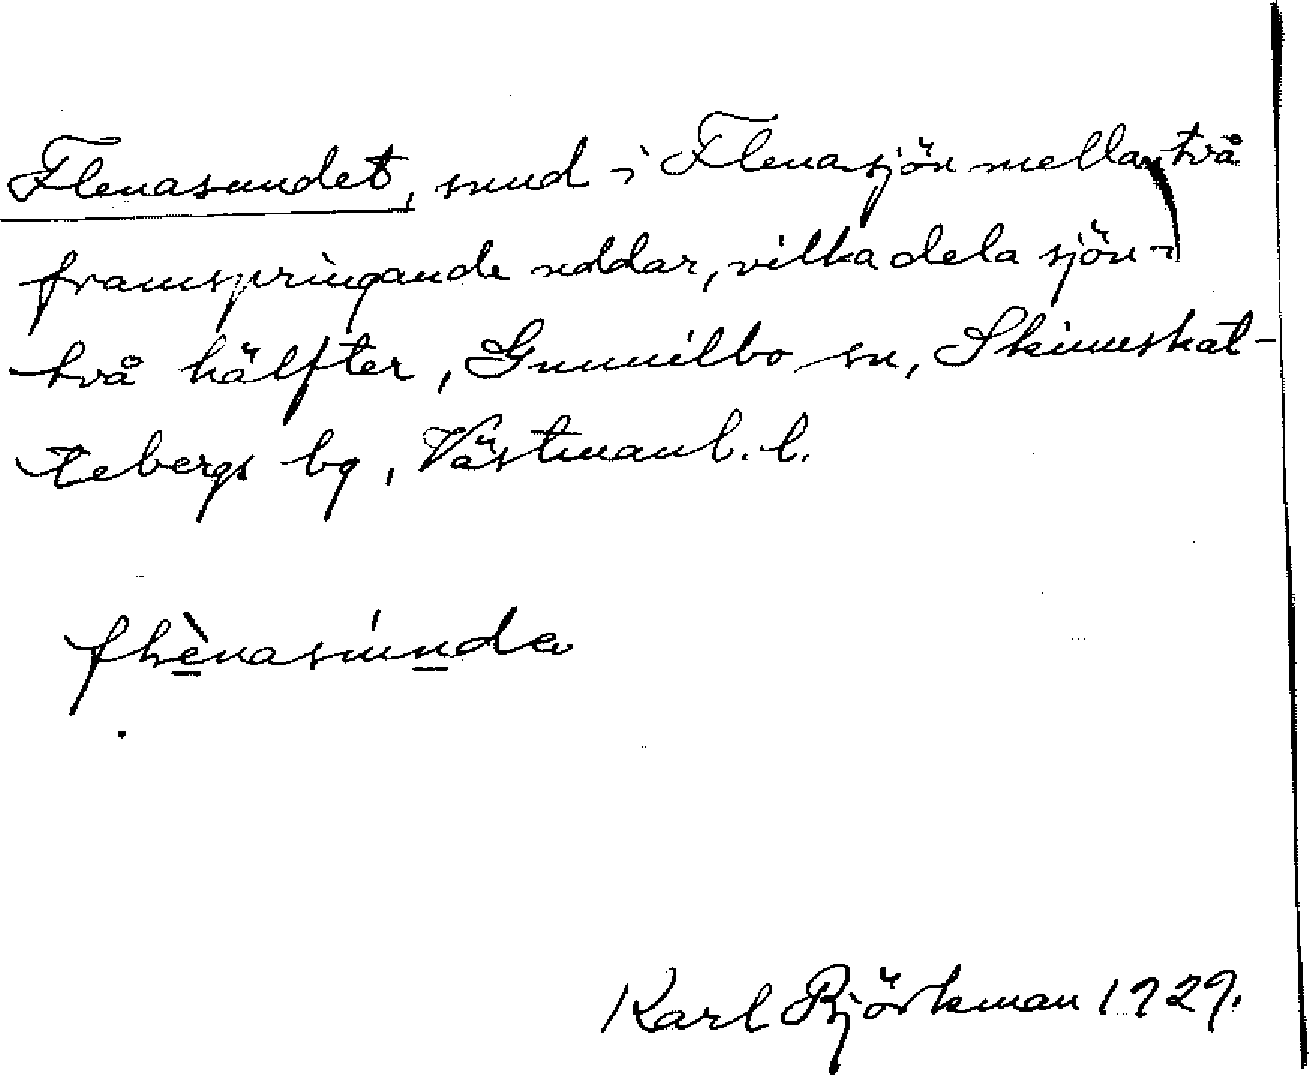 Flenasundet, sund i Flenasjön mellan två
framspringande uddar, vilka dela sjön i
två hälfter, Gunnilbo sn, Skinnskat-
tebergs bg, Västmanl. l.
flènasúnde
Karl Björkman 1929.